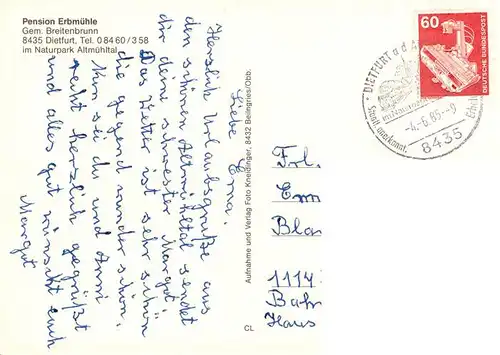 Pension Erbmühle
Gem. Breitenbrunn
8435 Dietfurt, Tel. 0 84 60 / 3 58
im Naturpark Altmühltal
Liebe Erna.
Herzlich Urlaubsgrüße aus
den schönen Altmühltal sendet
dir deine schwester Margut
Das Wetter ist sehr schön
die gegend wunder schön.
Nun sei du und Anni
recht herzlich gegrüßt
und alles gut wünscht euch
Margut
Aufnahme und Verlag Foto Kneidinger, 8432 Beilngries/Obb.
CL
60
DEUTSCHE BUNDESPOST
DIETFURT a d A
-4.-6.85--9
8435
Staatl. anerkannt.
Frl.
Ern
Bla
1114
Bahn
Haus